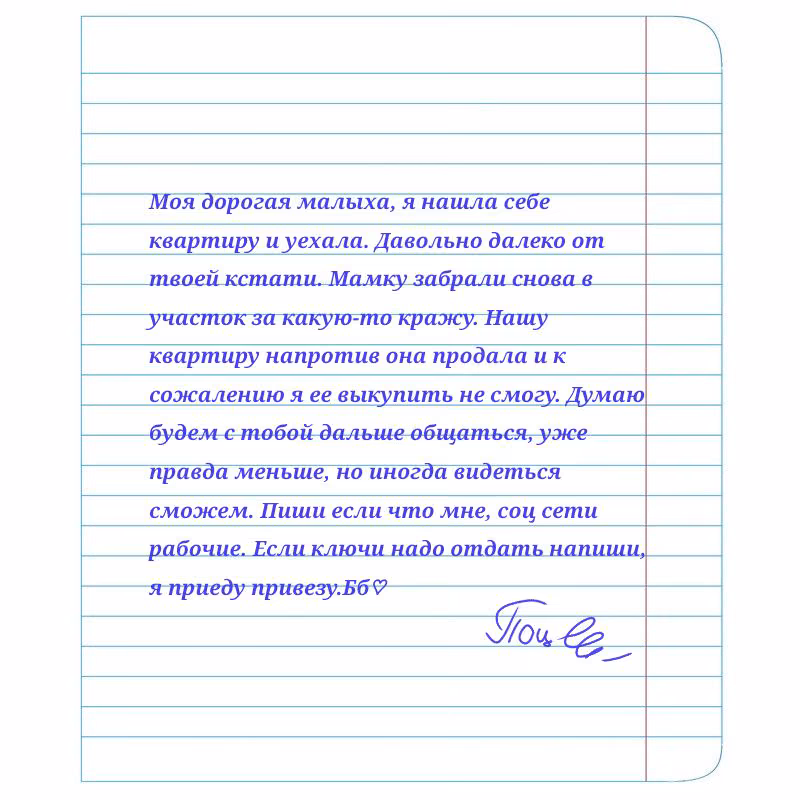 Моя дорогая малыха, я нашла себе
квартиру и уехала. Давольно далеко от
твоей кстати. Мамку забрали снова в
участок за какую-то кражу. Нашу
квартиру напротив она продала и к
сожалению я ее выкупить не смогу. Думаю
будем с тобой дальше общаться, уже
правда меньше, но иногда видеться
сможем. Пиши если что мне, соц сети
рабочие. Если ключи надо отдать напиши,
я приеду привезу.Бб♡